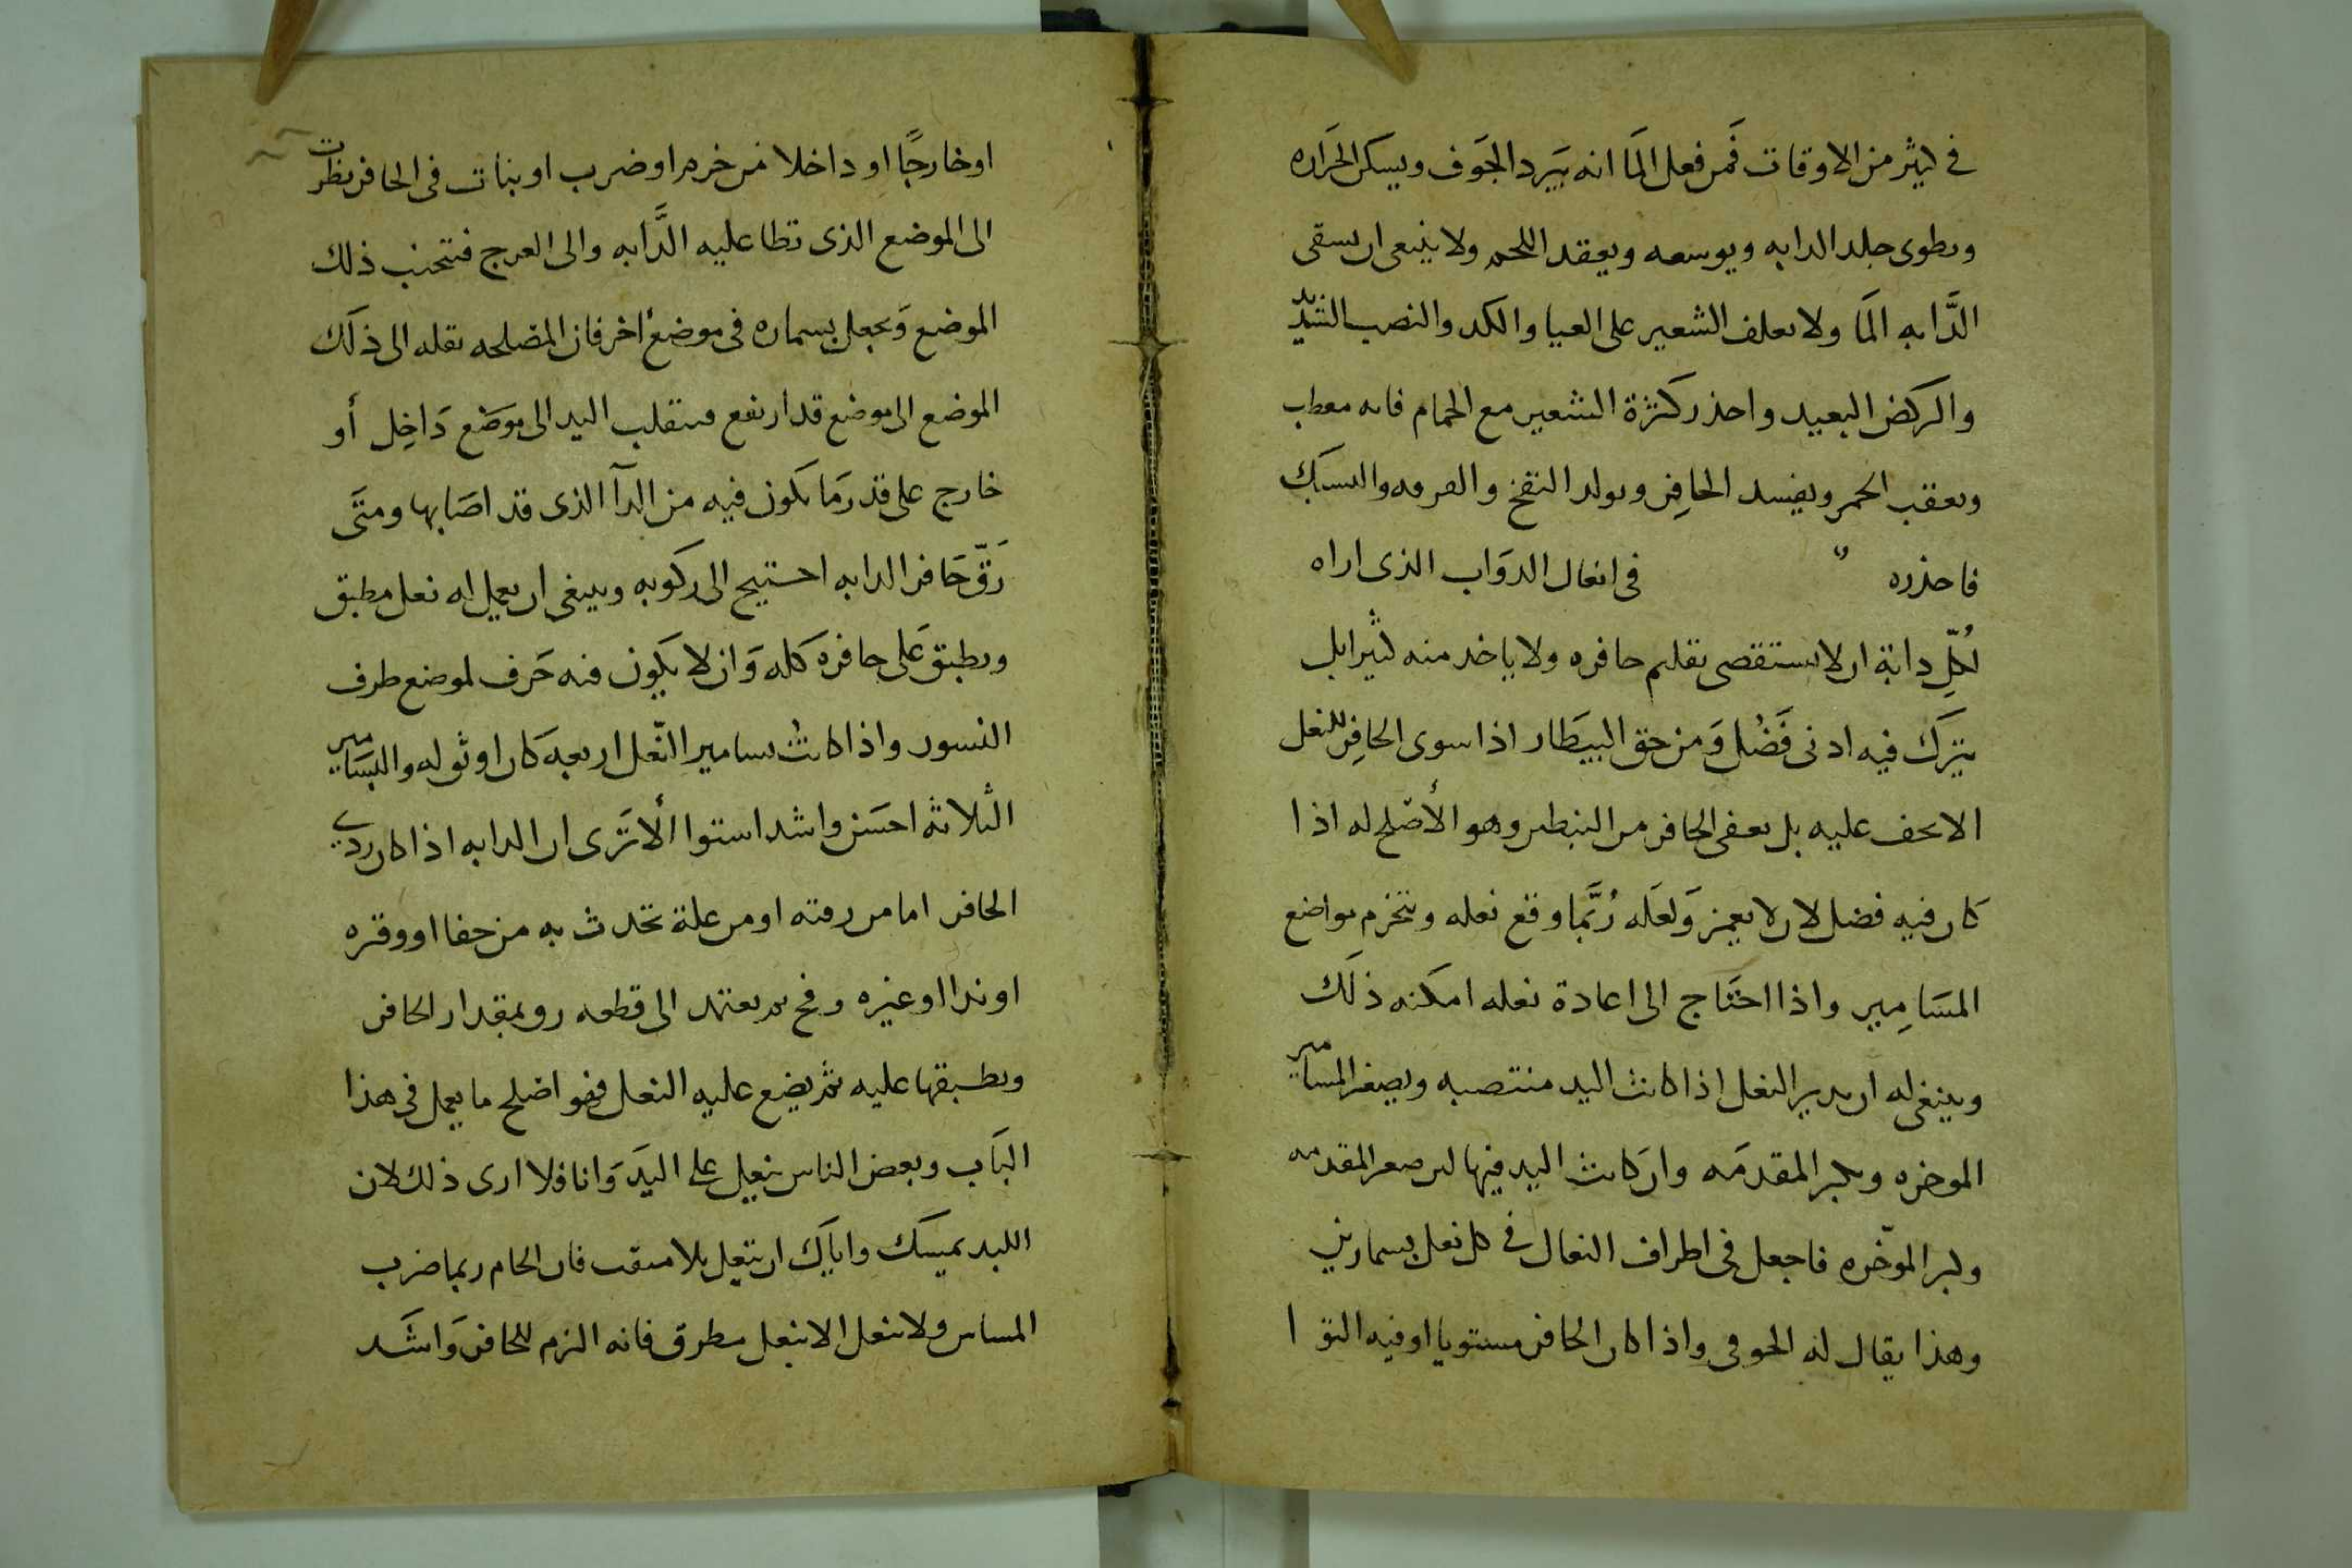 في كثير من الاوقات فمن فعل المَا انه يبرد الجَوف ويسكن الحَراره
ويطوى جلد الدابه ويوسعه ويعقد اللحم ولا ينبغى ان يسقى
الدَّابه المَا ولا يعلف الشعير على العيا والكد والنصب الشديد
والركض البعيد واحذر كثرة الشعير مع الحمام فانه معطب
ويعقب الحمر ويفسد الحافِر ويولد النفخ
فاحذره في انعال الدوَاب الذى اراه
لكلِّ دابة ان لا يستقصى تقليم حافره ولا ياخد منه كثير ابل
يترَك فيه ادنى فَضْل وَمن حق البيطَار اذا سوى الحافِر للنعل
الا يحف عليه بل يعفى الحافر من وهو الأصْلح له اذا
كان فيه فضل لان لا يغمز وَلعَله رُبَّما وقع نعله وتخرم مواضع
المسَامِير واذا احتَاج الى اعادة نعله امكنه ذلَك
وينبغى له ان يدير النعل اذا كانت اليد منتصبه ويصغر المسامير
الموخره ويكبر المقدمَه وان كانت اليد فيها صغر المقدمه
وكبر الموخّره فاجعل فى اطراف النعال في كل نعل بسمارين
وهذا يقال له واذا كان الحافر مستويا او فيه التوا
او خارجًا او داخلا من خرم او ضرب او بنات فى الحافر نظرت
الى الموضع الذى تطا عليه الدَّابه والى العرج فتجنب ذلك
الموضع وَيجعل بسماره فى موضع اخر فان المصلحه نقله الى ذلَك
الموضع الى موضع قد ارتفع فينقلب اليد الى موَضع دَاخِل أو
خارج على قدر مَا يكون فيه من الدآ الذى قد اصَابها ومتَى
رَقّ حَافر الدابه احتيج الى ركوبه وينبغى ان يعمل له نعل مطبق
ويطبق عَلى حافره كله وَان لا يكون فيه حَرف لموضع طرف
النسور واذا كانت بسامير النّعل اربعه كان اوثق له والبسَامير
الثلاثه احسَن واشد استوا ألا تَرى ان الدابه اذا كان ردي
الحافر اما من رقته او من علة تحدث به من حفا او وقره
او ندا او غيره يعتمد الى قطعه بمقدار الحافر
ويطبقها عليه ثم يضع عليه النعل فهو اصلح ما يعمل فى هذا
البَاب وبعض الناس ينعل على اليدَ وَانا فلا ارى ذلك لان
اللبد يمسك واياَك ان تنعل بلا فان الحام ربما ضرب
ولا تنعل الا بنعل مطرق فانه الزم للحافر وَاشَد